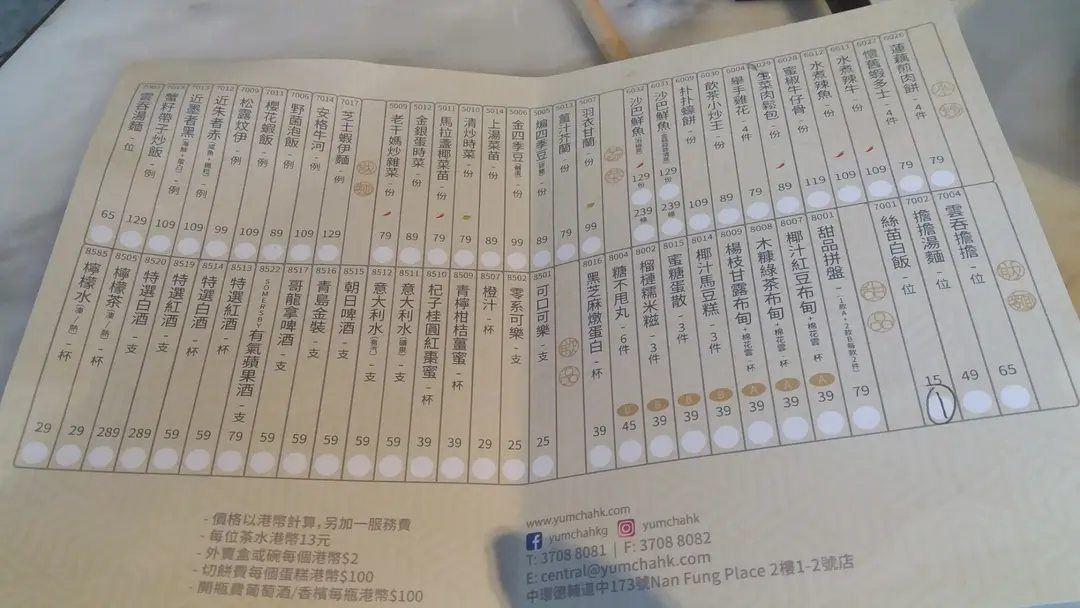 6026 蓮藕煎肉餅 - 4件 79
6027 懷舊蝦多士 - 4件 79
6011 水煮辣牛 - 份 109
6012 水煮辣魚 - 份 109
6028 蜜椒牛仔骨 - 份 119
6029 生菜肉鬆包 - 份 89
6004 舉手雞花 - 4件 79
6030 飲茶小炒王 - 份 89
6009 扑扑蠔餅 - 份 109
6031 沙巴鮮魚 129份 239條
6032 沙巴鮮魚 129份 239條
5007 羽衣甘蘭 - 份 99
5013 薑汁芥蘭 - 份 79
5005 煸四季豆 - 份 89
5006 金四季豆 - 份 99
5014 上湯菜苗 - 份 89
5010 清炒時菜 - 份 79
5011 馬拉盞椰菜苗 - 份 79
5012 金銀蛋時菜 - 份 89
5009 老干媽炒雜菜 - 份 79
飯 麵
7017 芝士蝦伊麵 - 例 129
7014 安格牛河 - 例 109
7006 野菌泡飯 - 例 89
7011 櫻花蝦飯 - 例 109
7009 松露炆伊 - 例 99
7012 近朱者赤 - 例 109
近墨者黑 - 例 109
蟹籽帶子炒飯 - 例 129
雲吞湯麵 - 位 65
飯 麵
7004 雲吞擔擔 - 位 65
7002 擔擔湯麵 - 位 49
7001 絲苗白飯 - 位 15
8001 甜品拼盤 (1款A + 2款B每款2件) 79
8007 椰汁紅豆布甸 + 棉花雲 - 杯 A 39
8008 木糠綠茶布甸 + 棉花雲 - 杯 A 39
8009 楊枝甘露布甸 + 棉花雲 - 杯 A 39
8014 椰汁馬豆糕 - 3件 B 39
8015 蜜糖蛋散 - 3件 B 39
8002 榴槤糯米糍 - 3件 B 39
8004 糖不甩丸 - 6件 B 45
8016 黑芝麻燉蛋白 - 杯 39
飲品
8501 可口可樂 - 支 25
8502 零系可樂 - 支 25
8507 橙汁 - 杯 29
8509 青檸柑桔薑蜜 - 杯 39
8510 杞子桂圓紅棗蜜 - 杯 39
8511 意大利水 (礦泉) - 支 59
8512 意大利水 (有汽) - 支 59
8515 朝日啤酒 - 支 59
8516 青島金裝 - 支 59
8517 哥龍拿啤酒 - 支 59
8522 SOMERSBY 有氣蘋果酒 - 支 59
8513 特選紅酒 - 杯 79
8514 特選白酒 - 杯 59
8519 特選紅酒 - 支 289
8520 特選白酒 - 支 289
8505 檸檬茶 (凍,熱) - 杯 29
8585 檸檬水 (凍,熱) - 杯 29
- 價格以港幣計算,另加一服務費
- 每位茶水港幣13元
- 外賣盒或碗每個港幣$2
- 切餅費每個蛋糕港幣$100
- 開瓶費葡萄酒/香檳每瓶港幣$100
www.yumchahk.com
yumchahkg yumchahk
T: 3708 8081 | F: 3708 8082
E: central@yumchahk.com
中環德輔道中173號Nan Fung Place 2樓1-2號店